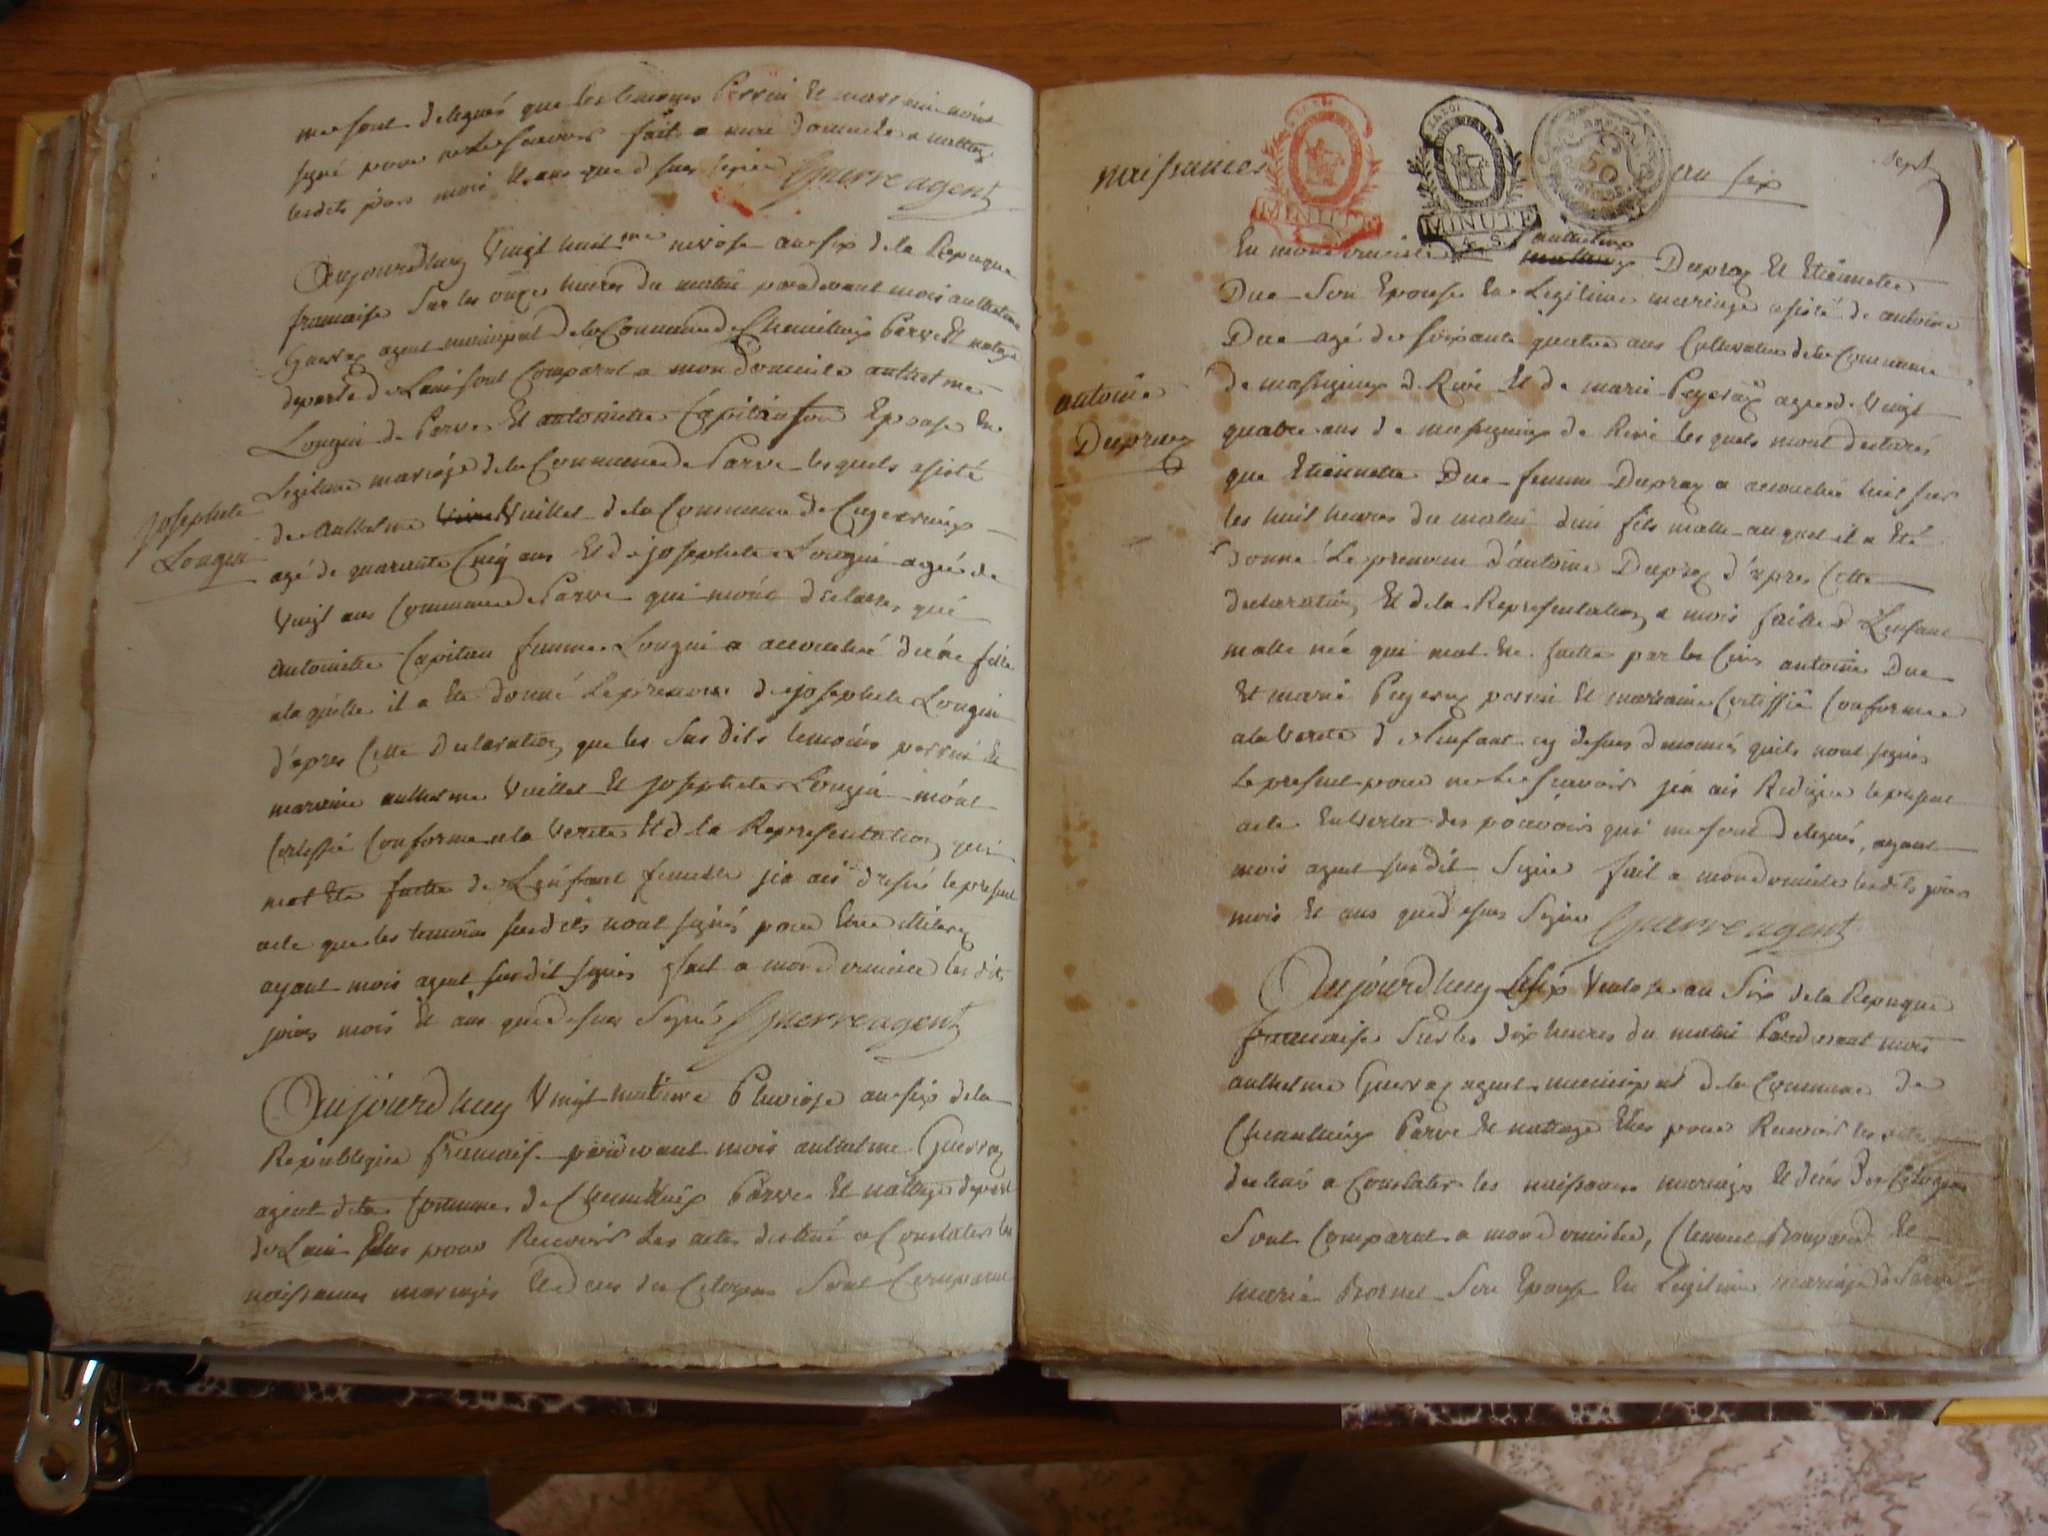 me sont delegués que les temoins Parrin et marraine n'ont
signé pour ne le scavoir fait a mon domicile a nattage
lesdits jour mois et ans que dessus signé Guerre agent
Aujourdhuy Vingt huit me nivose an six de la Repuque
francaise Sur les onze heures du matin pardevant mois anthelme
Guerraz agent municipal de la Commune de Chemilieux Parve Et natage
departe de Lain sont Comparut a mon domicile anthelme
Longin de Parve Et antoinette Capitan son Epouse En
Legitime mariage de la Commune de Parve lesquels asisté
Josephete
Longin
de Anthelme Vuillet de la Commune de
agé de quarente Cinq ans Et de josephete Longin agée de
Vingt ans Commune de Parve qui m'ont declarés que
antoinette Capitan femme Longin a accouché d'une fille
alaquelle il a Eté donné Le prenom de josephete Longin
d'apres Cette Declaration que les Susdits temoins parrin et
marraine anthelme Vuillet Et josephete Longin m'ont
Certiffié Conforme a la Verité Et de la Representation qui
mat Eté faitte de Lenfant femelle jea ais dressé le present
acte que les temoins susdits nont signés pour
ayant mois agent susdit signés fait a mon domicile les dits
jours mois Et ans que dessus Signé Guerre agent
Aujourdhuy Vingt huitieme Pluviose an six de la
Republique francaise pardevant mois anthelme Guerraz
agent de la Commune de Chemilieux Parve Et nattage departe
de Lain Elus pour Recevoir Les actes destiné a Constater les
naissances mariages Et deces des Citoyens Sont Comparut
naissances
MINUTE
MINUTE
4. S.
50
an six
Sept
En mon domicile anthelme Dupraz Et Etiennette
Due Son Epouse En Legitime mariage asisté de antoine
Due agé de soixante quatre ans Cultivateur de la Commune
antoine
Dupraz
de massigneux de Rive Et de marie Peyseraz agée de Vingt
quatre ans de massigneux de Rive les quels mont declarés
que Etiennette Due femme Dupraz a accouchée hier sur
les huit heures du matin d'un fils malle auquel il a Eté
donné Le prenom d'antoine Dupraz d'apres Cette
declaration Et de la Representation a mois faitte de Lenfant
malle née qui mat Eté faitte par les Cins antoine Due
Et marie Peyseraz parrin Et marraine Certiffié Conforme
a la Verité de Lenfant cy dessus denomé quils nont signés
Le present pour ne Le scavoir jea ais Redigée le present
acte En Vertu des pouvoirs qui me sont delegués, ayant
mois agent susdit Signé fait a mon domicile lesdits jours
mois Et ans que dessus Signé Guerre agent
Aujourdhuy Le six Ventose an Six de la Repuque
francaise Sur les dix heures du matin Pardevant mois
anthelme Guerraz agent municipal de la Commune de
Chemilieux Parve Et nattage Elus pour Recevoir les actes
destinés a Constater les naissance mariages Et deces Des Citoyens
Sont Comparut a mon domicile, Clement Et
marie Bornet Son Epouse En Legitime mariage de Parve